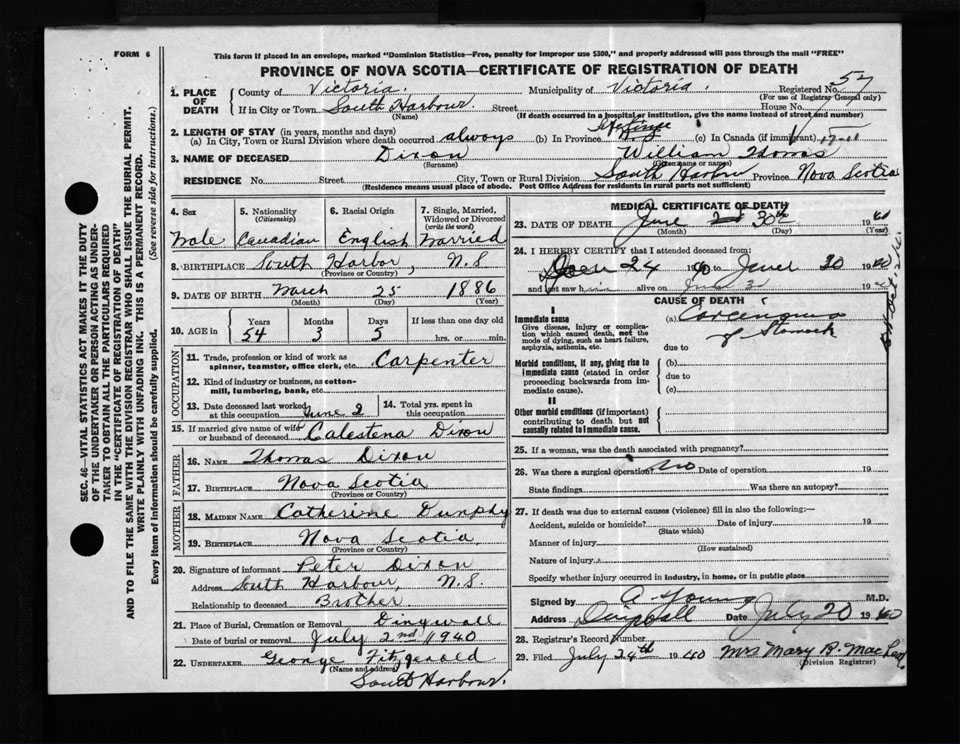 FORM 6
This form if placed in an envelope, marked "Dominion Statistics—Free, penalty for improper use $300," and properly addressed will pass through the mail "FREE"
PROVINCE OF NOVA SCOTIA—CERTIFICATE OF REGISTRATION OF DEATH
1. PLACE OF DEATH County of Victoria. Municipality of Victoria. Registered No. 57
(For use of Registrar General only)
If in City or Town South Harbour. Street House No.
(Name) (If death occurred in a hospital or institution, give the name instead of street and number)
2. LENGTH OF STAY (in years, months and days)
(a) In City, Town or Rural Division where death occurred always (b) In Province (c) In Canada (if immigrant)
3. NAME OF DECEASED Dixon William Thomas
(Surname) (Given name or names)
RESIDENCE No. Street City, Town or Rural Division South Harbour Province Nova Scotia
(Residence means usual place of abode. Post Office Address for residents in rural parts not sufficient)
4. Sex 5. Nationality (Citizenship) 6. Racial Origin 7. Single, Married, Widowed or Divorced (write the word)
Male Canadian English Married
8. BIRTHPLACE South Harbor, N.S
(Province or Country)
9. DATE OF BIRTH March 25 1886
(Month) (Day) (Year)
10. AGE in Years Months Days If less than one day old
54 3 5 hrs. or min.
OCCUPATION
11. Trade, profession or kind of work as spinner, teamster, office clerk, etc. Carpenter
12. Kind of industry or business, as cotton-mill, lumbering, bank, etc.
13. Date deceased last worked at this occupation June 2 14. Total yrs. spent in this occupation
15. If married give name of wife or husband of deceased Calestena Dixon
FATHER
16. NAME Thomas Dixon
17. BIRTHPLACE Nova Scotia
(Province or Country)
MOTHER
18. MAIDEN NAME Catherine Dunphy
19. BIRTHPLACE Nova Scotia
(Province or Country)
20. Signature of informant Peter Dixon
Address South Harbour, N.S.
Relationship to deceased Brother.
21. Place of Burial, Cremation or Removal Dingwall
Date of burial or removal July 2nd 1940
22. UNDERTAKER George Fitzgerald
(Name and address)
South Harbour.
MEDICAL CERTIFICATE OF DEATH
23. DATE OF DEATH June 30th 1940
(Month) (Day) (Year)
24. I HEREBY CERTIFY that I attended deceased from:
24 1940 to June 30 1940
and last saw him alive on 19
CAUSE OF DEATH
I
Immediate cause
Give disease, injury or complication which caused death, not the mode of dying, such as heart failure, asphyxia, asthenia, etc.
(a) Carcinoma
of Stomach
due to
Morbid conditions, if any, giving rise to immediate cause (stated in order proceeding backwards from immediate cause).
(b)
due to
(c)
II
Other morbid conditions (if important) contributing to death but not causally related to immediate cause.
25. If a woman, was the death associated with pregnancy?
26. Was there a surgical operation? No Date of operation 19
State findings Was there an autopsy?
27. If death was due to external causes (violence) fill in also the following:—
Accident, suicide or homicide? Date of injury 19
(State which)
Manner of injury
(How sustained)
Nature of injury
Specify whether injury occurred in industry, in home, or in public place
Signed by A Young M.D.
Address Dingwall Date July 20 1940
28. Registrar's Record Number
29. Filed July 24th 1940 Mrs Mary B. MacLeod
(Division Registrar)
SEC. 46—VITAL STATISTICS ACT MAKES IT THE DUTY
OF THE UNDERTAKER OR PERSON ACTING AS UNDER-
TAKER TO OBTAIN ALL THE PARTICULARS REQUIRED
IN THE "CERTIFICATE OF REGISTRATION OF DEATH" AND TO FILE THE SAME WITH THE DIVISION REGISTRAR WHO SHALL ISSUE THE BURIAL PERMIT.
WRITE PLAINLY WITH UNFADING INK. THIS IS A PERMANENT RECORD.
Every item of information should be carefully supplied. (See reverse side for instructions.)